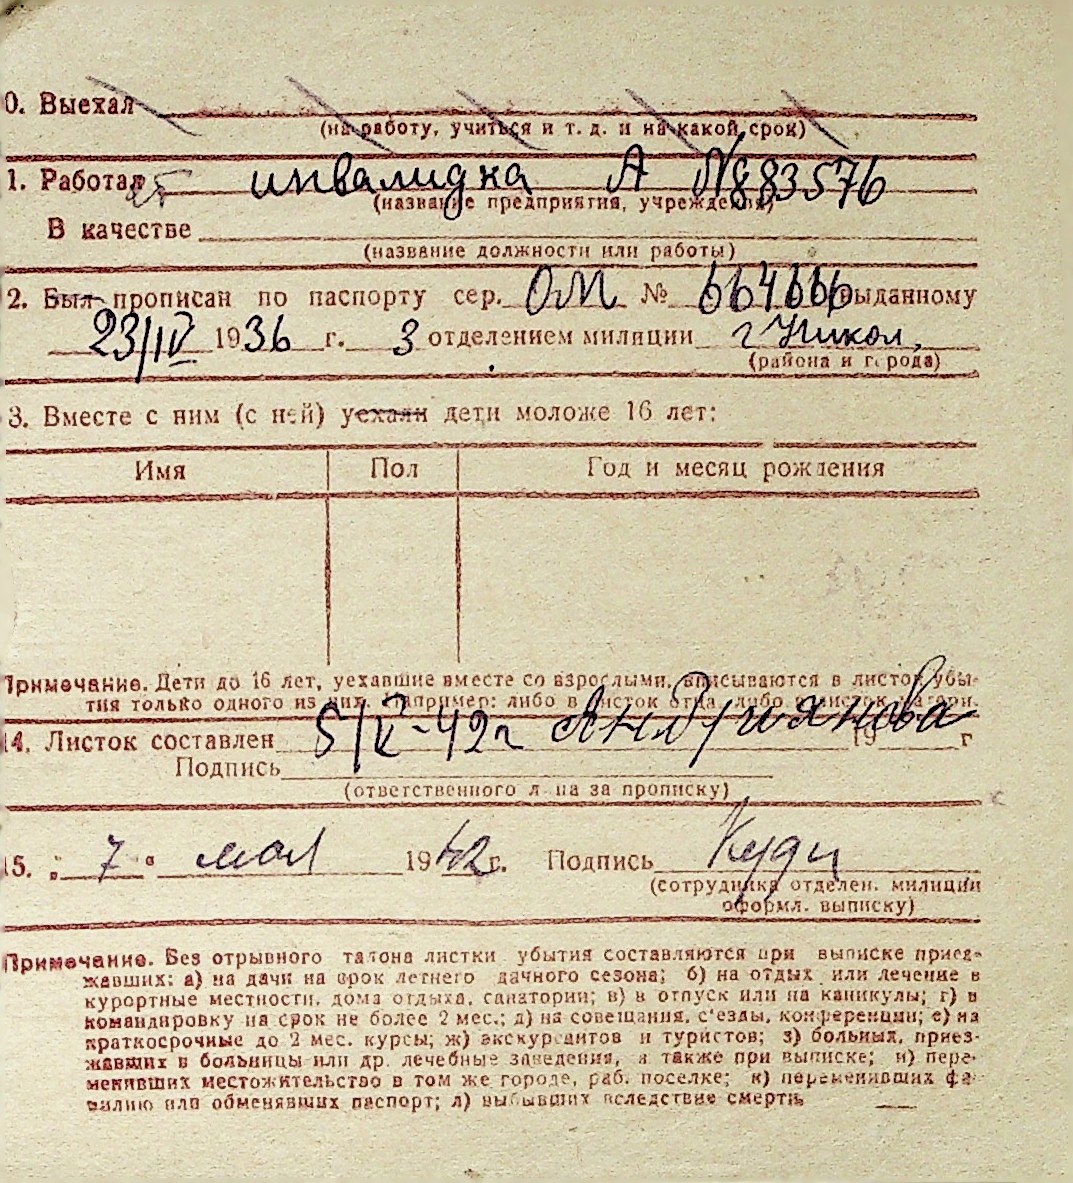 0. Выехал
(на работу, учиться и т. д. и на какой срок)
1. Работал ет инвалидка А N883576
(название предприятия, учреждения)
В качестве
(название должности или работы)
2. Был прописан по паспорту сер. ОМ № 664666 выданному
23/IV 1936 г. 3 отделением милиции г Никол.
(района и города)
3. Вместе с ним (с ней) уехали дети моложе 16 лет:
Имя Пол Год и месяц рождения
Примечание. Дети до 16 лет, уехавшие вместе со взрослыми, вписываются в листок убы-
тия только одного из них. Например: либо в листок отца, либо в листок матери.
14. Листок составлен 5/V-42г Андриянова 19 г
Подпись
(ответственного лица за прописку)
15. „ 7 " мая 1942 г. Подпись Куди
(сотрудника отделен. милиции
оформл. выписку)
Примечание. Без отрывного талона листки убытия составляются при выписке приез-
жавших: а) на дачи на срок летнего дачного сезона; б) на отдых или лечение в
курортные местности, дома отдыха, санатории; в) в отпуск или на каникулы; г) в
командировку на срок не более 2 мес.; д) на совещания, с'езды, конференции; е) на
краткосрочные до 2 мес. курсы; ж) экскурсантов и туристов; з) больных, приез-
жавших в больницы или др. лечебные заведения, а также при выписке; и) пере-
менивших местожительство в том же городе, раб. поселке; к) переменивших фа-
милию или обменявших паспорт; л) выбывших вследствие смерти